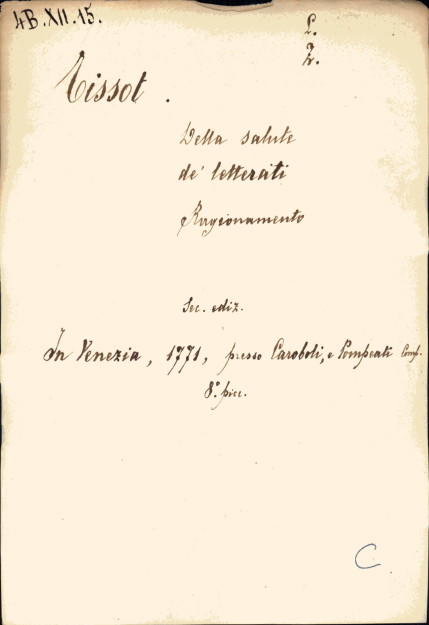 4B.XII.15.
L.
Z.
Tissot.
Della salute
de' letterati
Ragionamento
Sec. ediz.
In Venezia, 1771, presso Caroboli, e Pompeati Comp.
8.° picc.
C